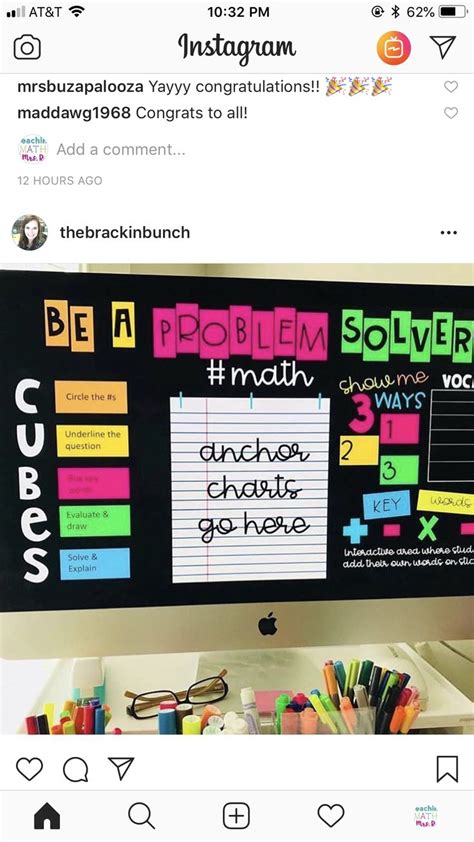 AT&T 10:32 PM 62%
Instagram
mrsbuzapalooza Yayyy congratulations!! 🎉🎉🎉
maddawg1968 Congrats to all!
MATH
Add a comment...
12 HOURS AGO
thebrackinbunch
BE A PROBLEM SOLVER
#math
CUBES
Circle the #s
Underline the
question
Evaluate &
draw
Solve &
Explain
anchor
charts
go here
show me
3 WAYS
1
2
3
VOCA
KEY words
+ - x
Interactive area where stud
add their own words on stic
MATH